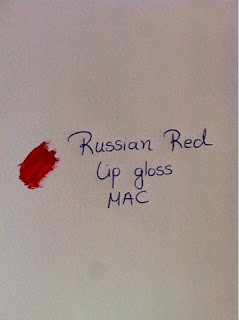 Russian Red
Lip gloss
MAC